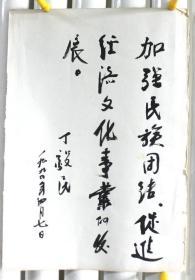 加强民族团结、促进
经济文化事业的发
展。
丁毅民
一九九六年四月七日